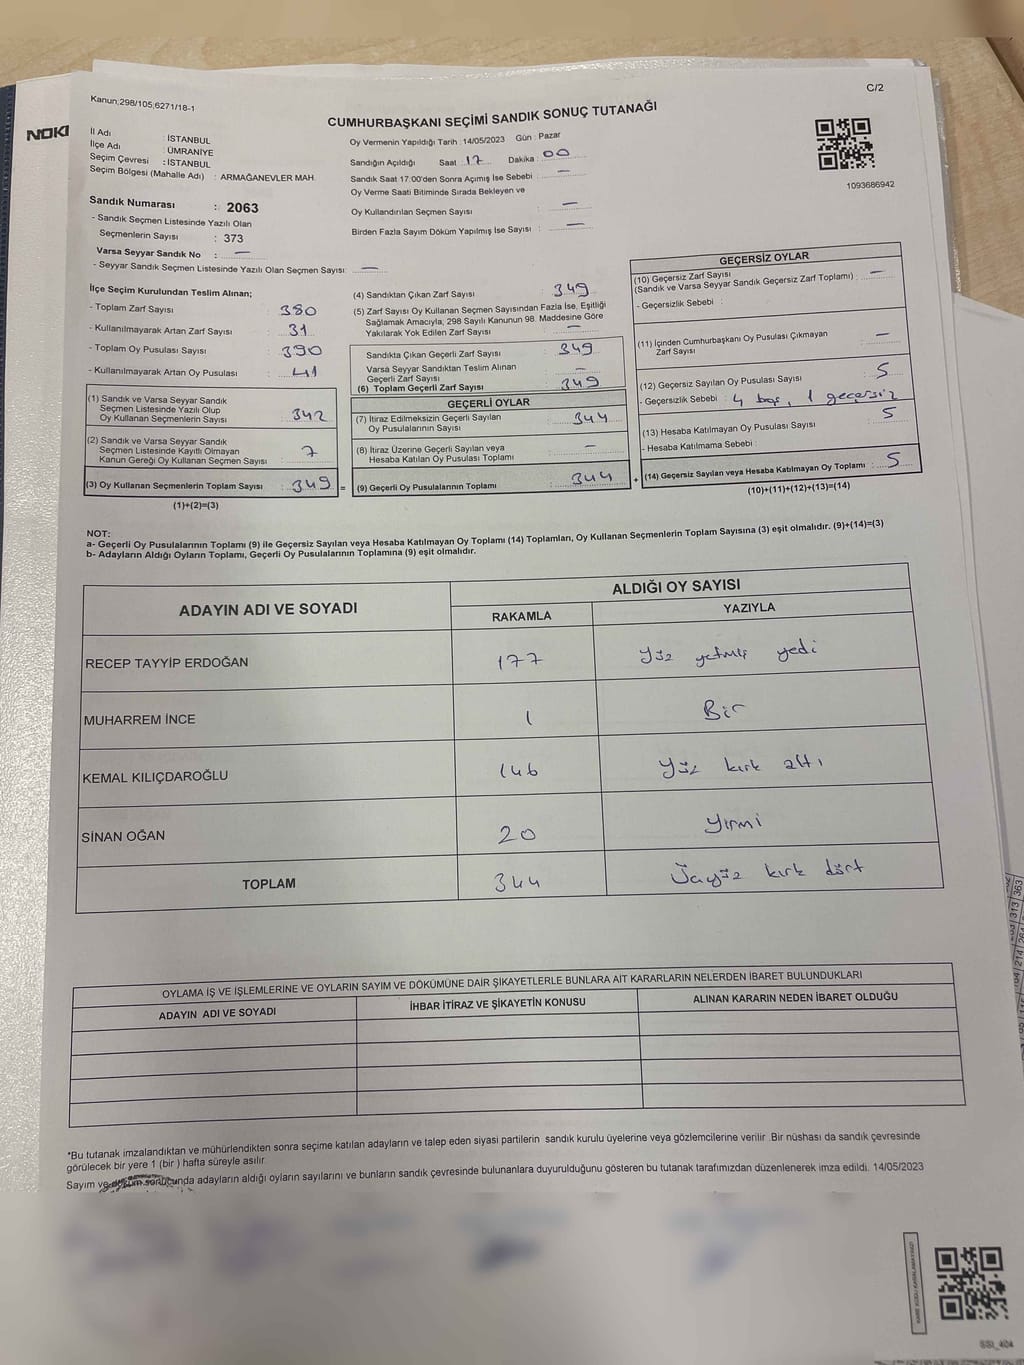 Kanun;298/105;6271/18-1
C/2
CUMHURBAŞKANI SEÇİMİ SANDIK SONUÇ TUTANAĞI
NOKI
İl Adı : İSTANBUL
İlçe Adı : ÜMRANİYE
Seçim Çevresi : İSTANBUL
Seçim Bölgesi (Mahalle Adı) : ARMAĞANEVLER MAH.
Oy Vermenin Yapıldığı Tarih : 14/05/2023 Gün : Pazar
Sandığın Açıldığı Saat : 17 Dakika : 00
Sandık Saat 17:00'den Sonra Açımış İse Sebebi : —
Oy Verme Saati Bitiminde Sırada Bekleyen ve
Oy Kullandırılan Seçmen Sayısı : —
Birden Fazla Sayım Döküm Yapılmış İse Sayısı : —
1093686942
Sandık Numarası : 2063
- Sandık Seçmen Listesinde Yazılı Olan
Seçmenlerin Sayısı : 373
Varsa Seyyar Sandık No : —
- Seyyar Sandık Seçmen Listesinde Yazılı Olan Seçmen Sayısı: —
İlçe Seçim Kurulundan Teslim Alınan;
- Toplam Zarf Sayısı : 380
- Kullanılmayarak Artan Zarf Sayısı : 31
- Toplam Oy Pusulası Sayısı : 390
- Kullanılmayarak Artan Oy Pusulası : 41
(1) Sandık ve Varsa Seyyar Sandık
Seçmen Listesinde Yazılı Olup
Oy Kullanan Seçmenlerin Sayısı : 342
(2) Sandık ve Varsa Seyyar Sandık
Seçmen Listesinde Kayıtlı Olmayan
Kanun Gereği Oy Kullanan Seçmen Sayısı : 7
(3) Oy Kullanan Seçmenlerin Toplam Sayısı : 349 =
(1)+(2)=(3)
(4) Sandıktan Çıkan Zarf Sayısı : 349
(5) Zarf Sayısı Oy Kullanan Seçmen Sayısından Fazla İse, Eşitliği
Sağlamak Amacıyla, 298 Sayılı Kanunun 98. Maddesine Göre
Yakılarak Yok Edilen Zarf Sayısı : —
Sandıkta Çıkan Geçerli Zarf Sayısı : 349
Varsa Seyyar Sandıktan Teslim Alınan
Geçerli Zarf Sayısı : —
(6) Toplam Geçerli Zarf Sayısı : 349
GEÇERLİ OYLAR
(7) İtiraz Edilmeksizin Geçerli Sayılan
Oy Pusulalarının Sayısı : 344
(8) İtiraz Üzerine Geçerli Sayılan veya
Hesaba Katılan Oy Pusulası Toplamı : —
(9) Geçerli Oy Pusulalarının Toplamı : 344 +
GEÇERSİZ OYLAR
(10) Geçersiz Zarf Sayısı
(Sandık ve Varsa Seyyar Sandık Geçersiz Zarf Toplamı) : —
- Geçersizlik Sebebi :
(11) İçinden Cumhurbaşkanı Oy Pusulası Çıkmayan
Zarf Sayısı : —
(12) Geçersiz Sayılan Oy Pusulası Sayısı : 5
- Geçersizlik Sebebi : 4 boş, 1 geçersiz
(13) Hesaba Katılmayan Oy Pusulası Sayısı : 5
- Hesaba Katılmama Sebebi :
(14) Geçersiz Sayılan veya Hesaba Katılmayan Oy Toplamı : 5
(10)+(11)+(12)+(13)=(14)
NOT:
a- Geçerli Oy Pusulalarının Toplamı (9) ile Geçersiz Sayılan veya Hesaba Katılmayan Oy Toplamı (14) Toplamları, Oy Kullanan Seçmenlerin Toplam Sayısına (3) eşit olmalıdır. (9)+(14)=(3)
b- Adayların Aldığı Oyların Toplamı, Geçerli Oy Pusulalarının Toplamına (9) eşit olmalıdır.
ADAYIN ADI VE SOYADI
ALDIĞI OY SAYISI
RAKAMLA YAZIYLA
RECEP TAYYİP ERDOĞAN 177 Yüz yetmiş yedi
MUHARREM İNCE 1 Bir
KEMAL KILIÇDAROĞLU 146 Yüz kırk altı
SİNAN OĞAN 20 Yirmi
TOPLAM 344 Üçyüz kırk dört
OYLAMA İŞ VE İŞLEMLERİNE VE OYLARIN SAYIM VE DÖKÜMÜNE DAİR ŞİKAYETLERLE BUNLARA AİT KARARLARIN NELERDEN İBARET BULUNDUKLARI
ADAYIN ADI VE SOYADI İHBAR İTİRAZ VE ŞİKAYETİN KONUSU ALINAN KARARIN NEDEN İBARET OLDUĞU
*Bu tutanak imzalandıktan ve mühürlendikten sonra seçime katılan adayların ve talep eden siyasi partilerin sandık kurulu üyelerine veya gözlemcilerine verilir. Bir nüshası da sandık çevresinde
görülecek bir yere 1 (bir ) hafta süreyle asılır.
Sayım ve döküm sonucunda adayların aldığı oyların sayılarını ve bunların sandık çevresinde bulunanlara duyurulduğunu gösteren bu tutanak tarafımızdan düzenlenerek imza edildi. 14/05/2023